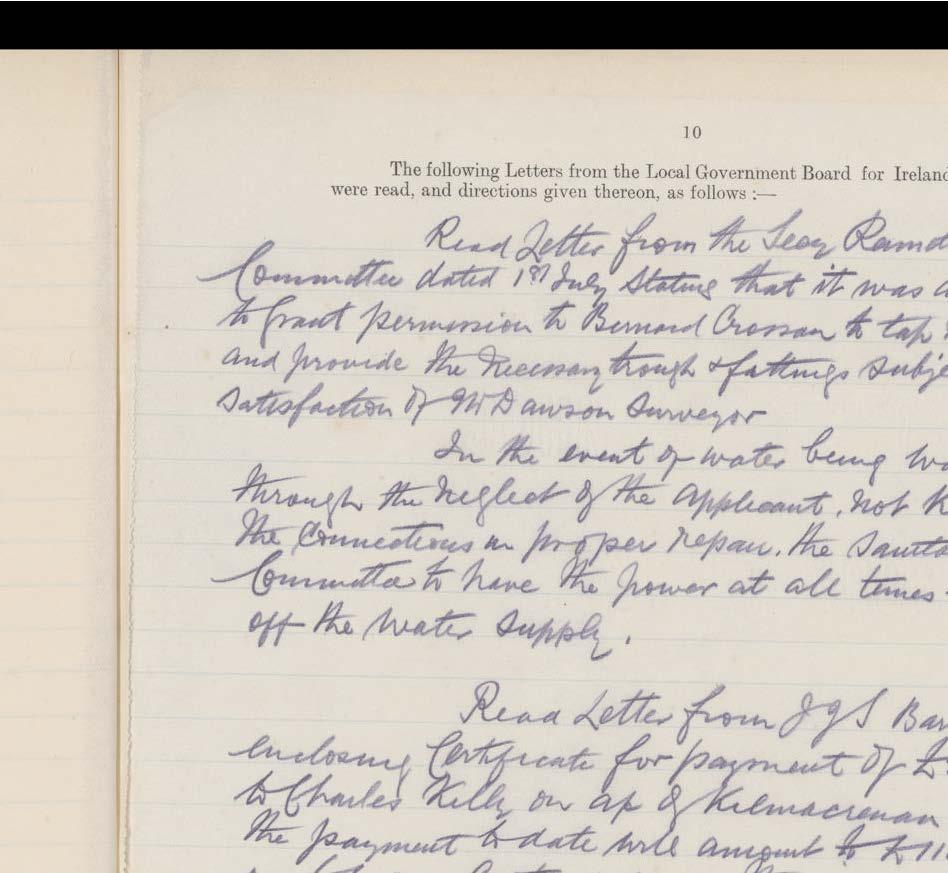 10
The following Letters from the Local Government Board for Ireland
were read, and directions given thereon, as follows :—
Read Letter from the Secy
Committee dated 1st July Stating that it was
to Grant permission to Bernard Crossan to tap
and provide the necessary trough & fittings subje
satisfaction of Mr Dawson Surveyor
In the event of water being
through the neglect of the applicant, not
the Connections in proper repair. the Sanita
Committee to have the power at all times
off the water supply.
Read Letter from J G S Bar
enclosing Certificate for payment of £
to Charles Kelly on a/c of Kilmacrenan
the payment to date will amount to £11